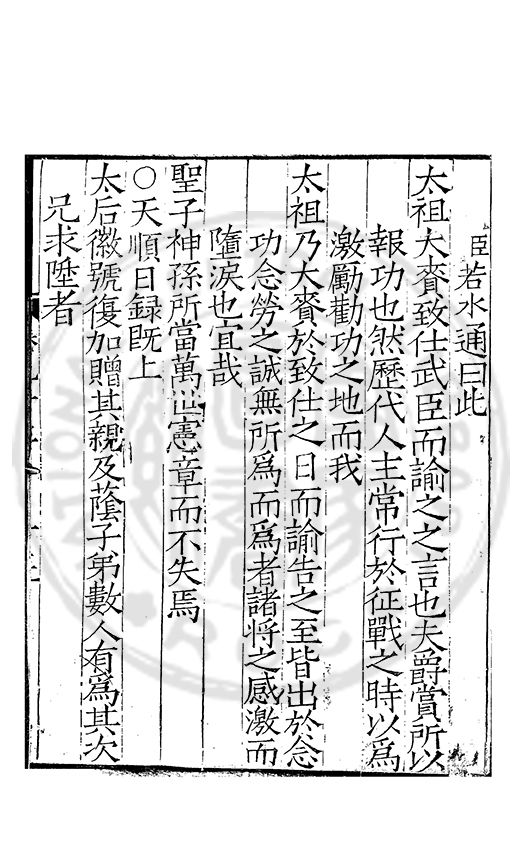 臣若水通曰此
太祖大賚致仕武臣而諭之之言也夫爵賞所以
報功也然歷代人主常行於征戰之時以爲
激勵勸功之地而我
太祖乃大賚於致仕之日而諭告之至皆出於念
功念勞之誠無所爲而爲者諸將之感激而
墮淚也宜哉
聖子神孫所當萬世憲章而不失焉
○天順日録旣上
太后徽號復加贈其親及蔭子弟數人有爲其次
兄求陞者